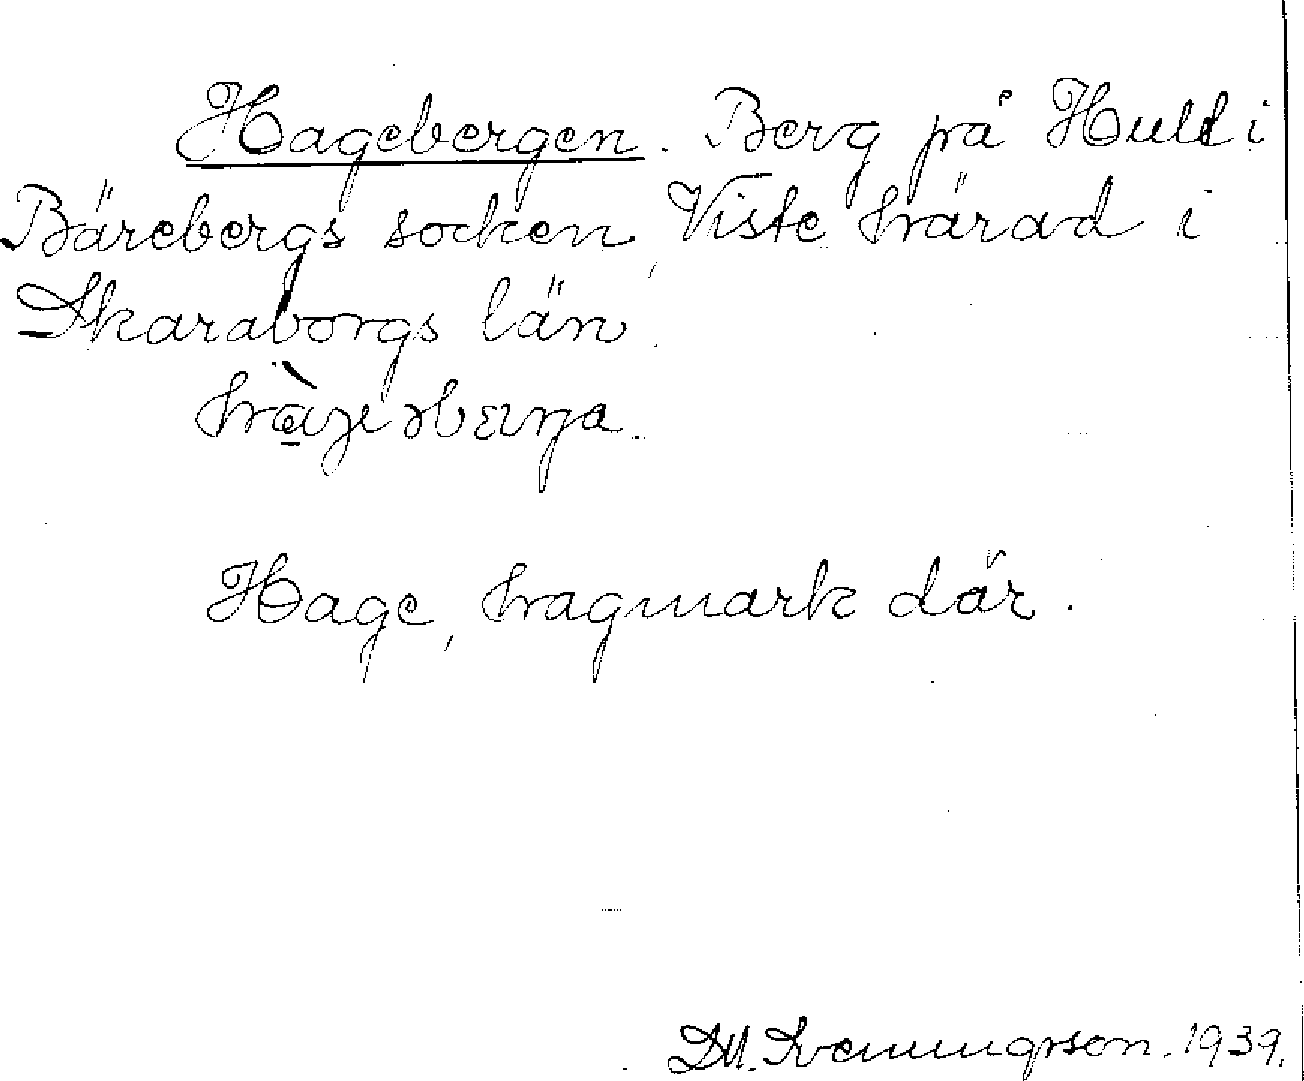 Hagebergen. Berg på Hult i
Bärebergs socken, Viste härad i
Skaraborgs län.
Hage, hagmark där.
D.A. Svenningsson. 1939.